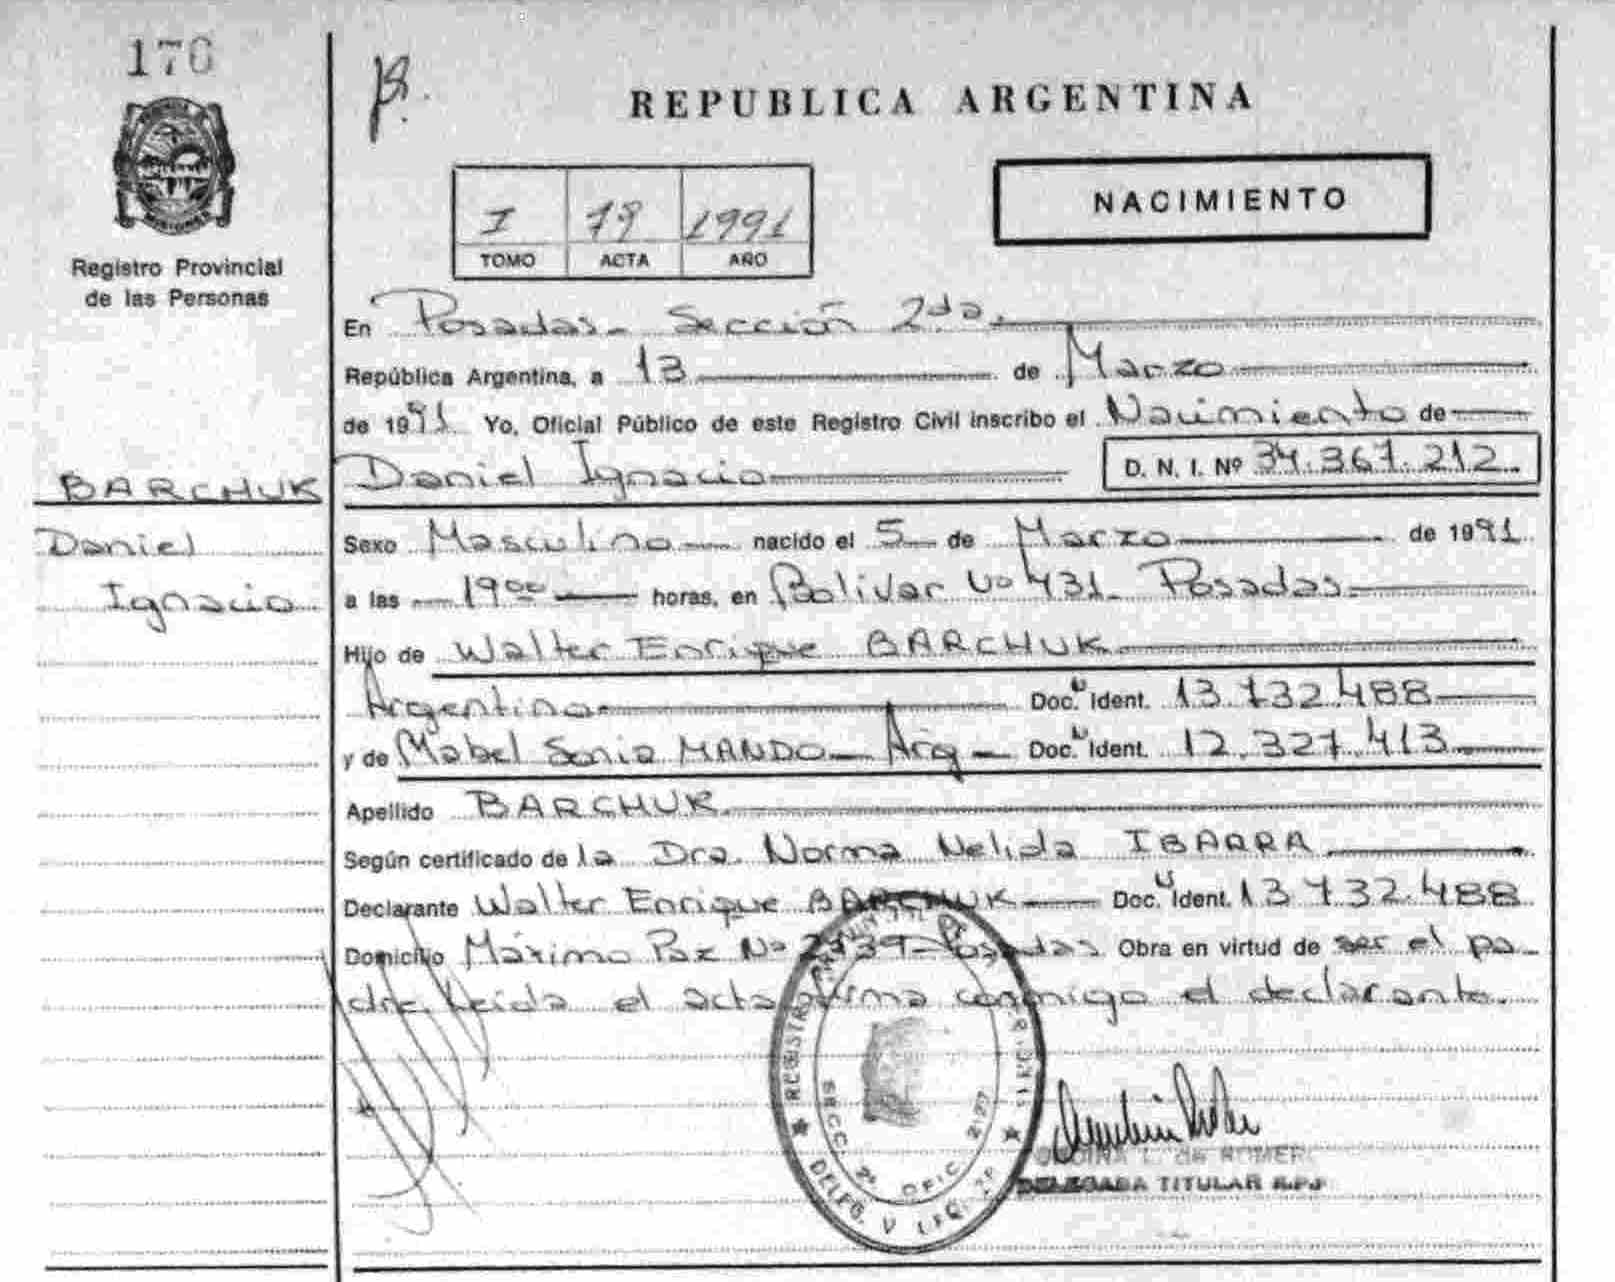 170
REPUBLICA ARGENTINA
NACIMIENTO
I 79 1991
TOMO ACTA AÑO
Registro Provincial
de las Personas
En Posadas - Sección 2da.
República Argentina, a 13 de Marzo
de 1991 Yo, Oficial Público de este Registro Civil inscribo el Nacimiento de
BARCHUK Daniel Ignacio D. N. I. Nº 34.367.212
Daniel
Ignacio
Sexo Masculino nacido el 5 de Marzo de 1991
a las 19 00 horas, en Bolivar Nº 431 - Posadas
Hijo de Walter Enrique BARCHUK
Argentino Doc. Ident. 13.732.488
y de Mabel Sonia MANDO - Arg - Doc. Ident. 12.327.413
Apellido BARCHUK
Según certificado de la Dra. Norma Nelida IBARRA
Declarante Walter Enrique BARCHUK Doc. Ident. 13.732.488
Domicilio Máximo Paz Nº 2739 - Posadas Obra en virtud de ser el pa-
dre. Leida el acta firma conmigo el declarante.
REGISTRO
SECC. 2ª OFIC.
DELEG.
L. de ROMERO
DELEGADA TITULAR R.P.P